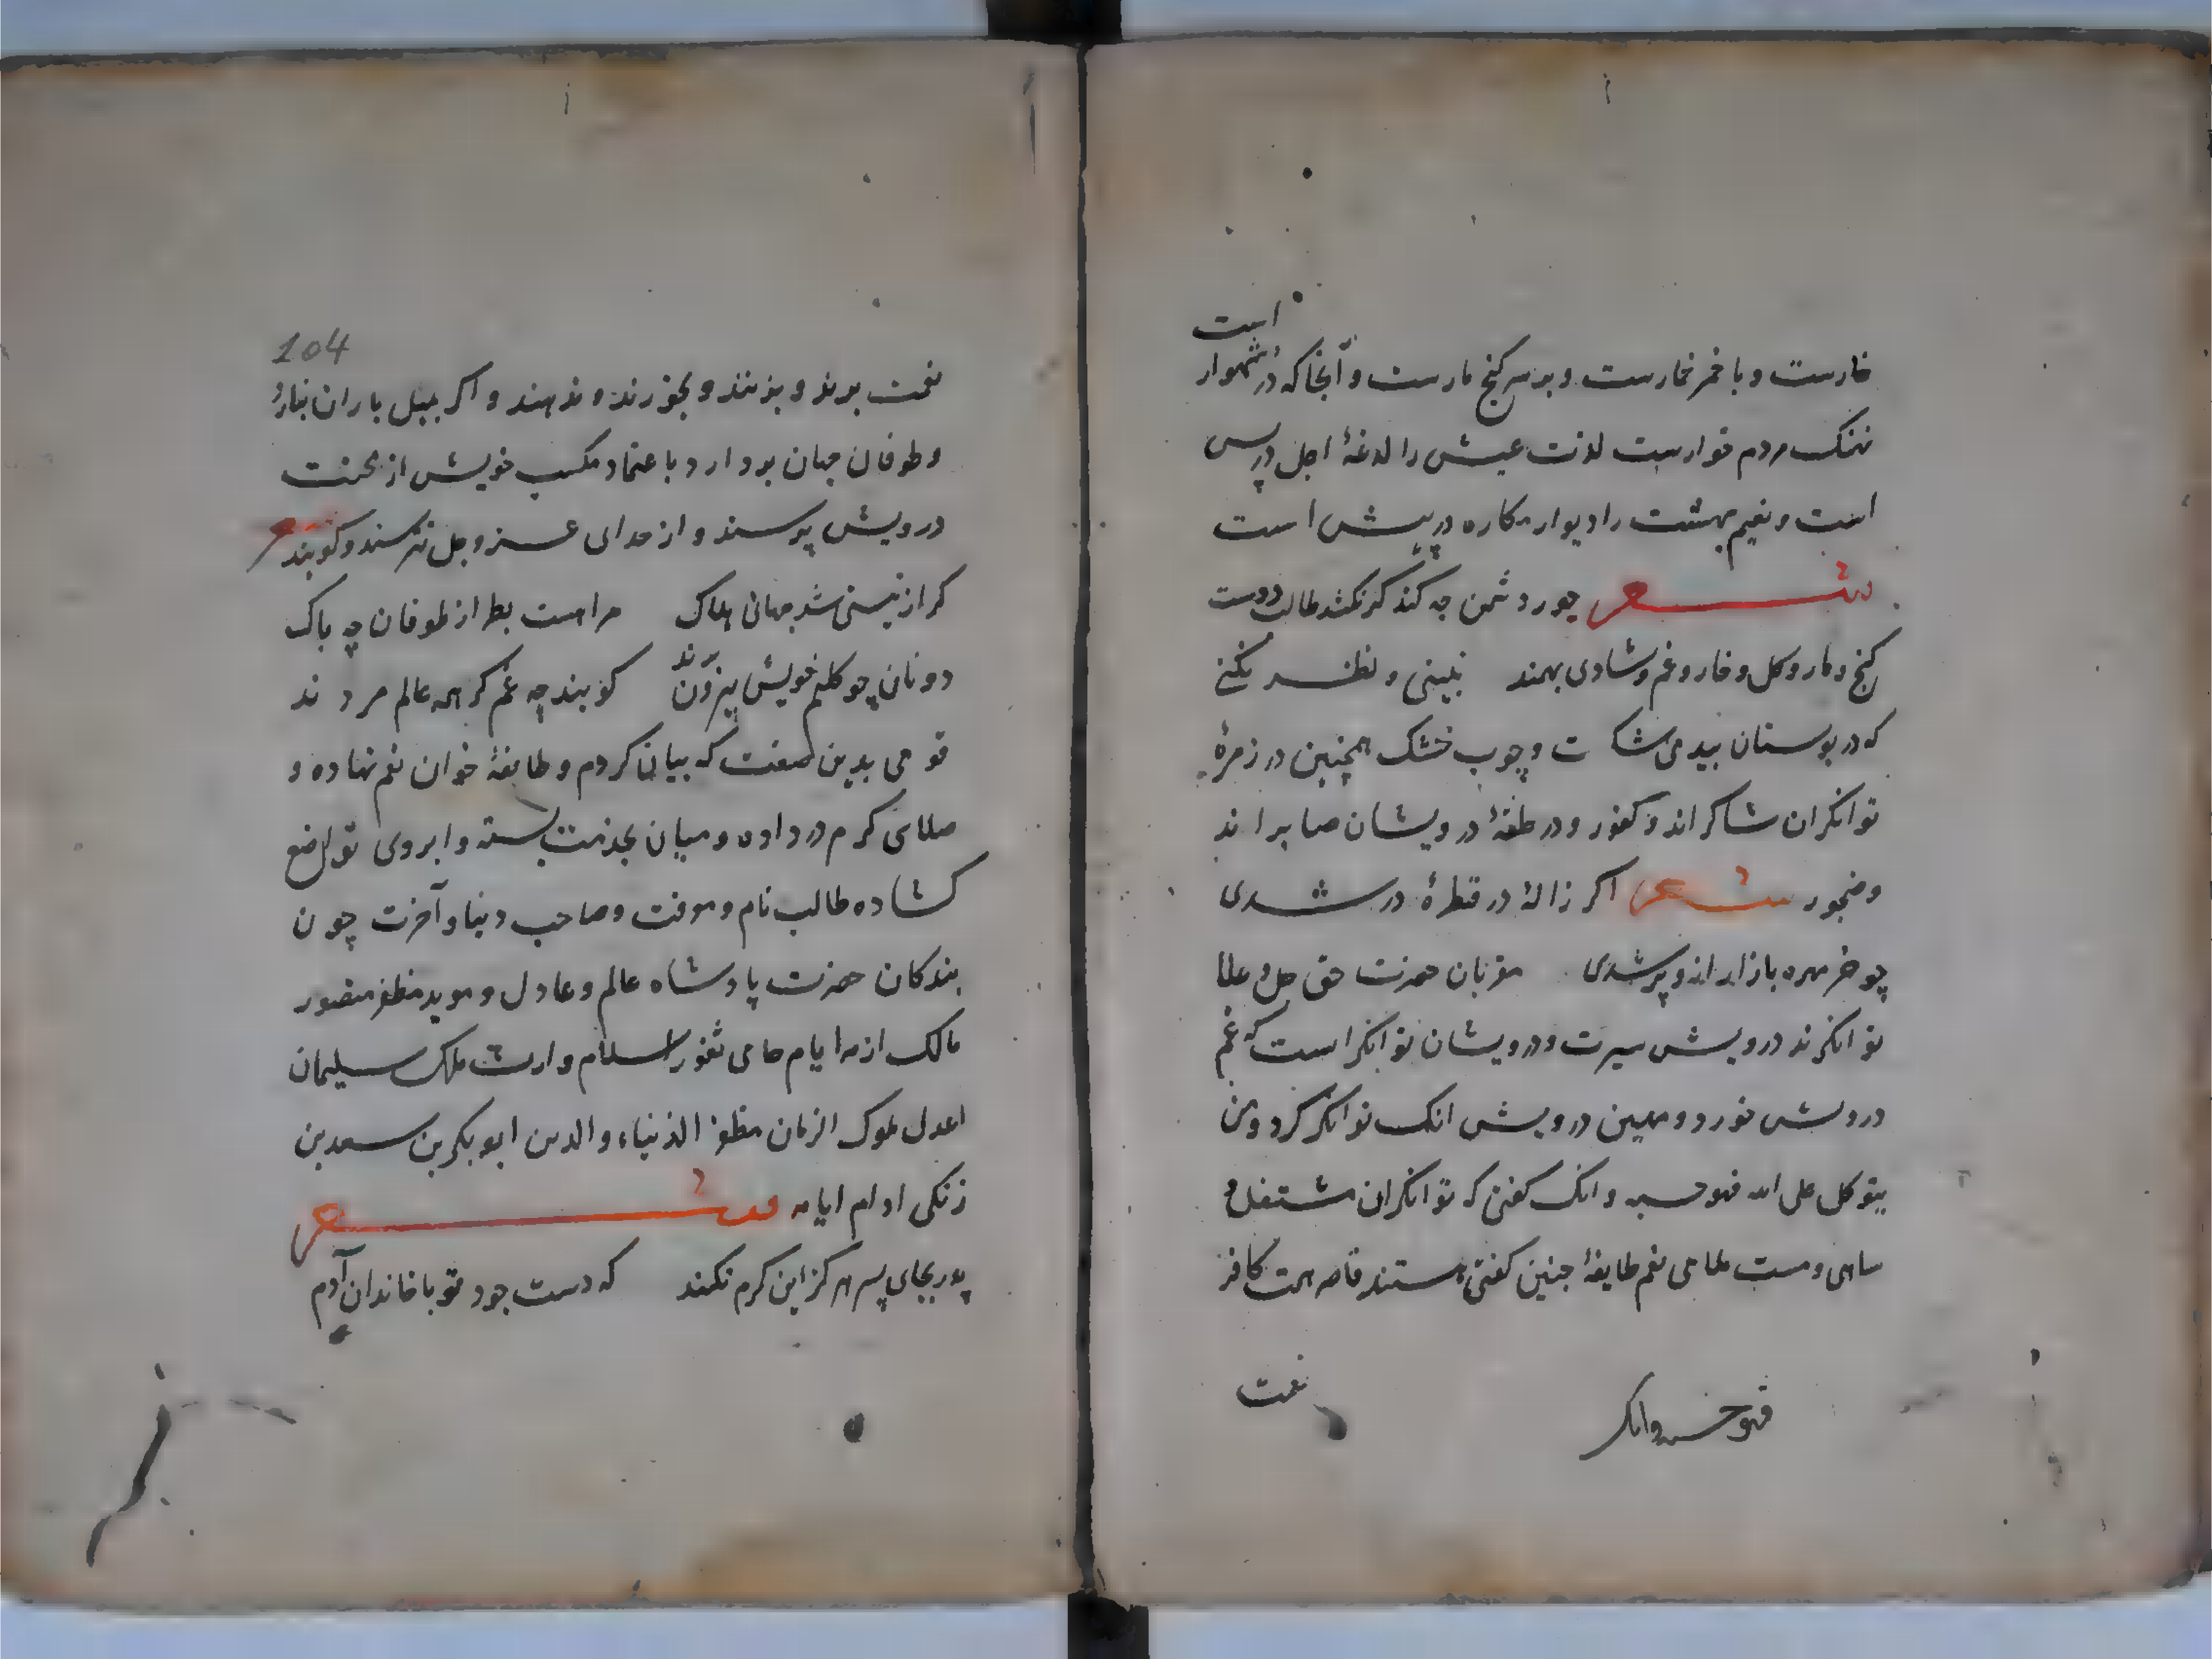 است
خارست و با خمر خمارست و بر سر کنج مارست و آنجا که در شهوار
نهنک مردم خوارست لذت عیش را لدغهٔ اجل در پس
است و نعیم بهشت را دیوار مکاره در پیش است
شعر جور دشمن چه کند کر نکشد طالب دوست
کنج و مار و کل و خار و غم و شادی بهمند نبینی و نظر نکنی
که در بوستان بید می شکـ ت و چوب خشک همچنین در زمرهٔ
توانکران شاکراند و کفور و در حلقهٔ درویشان صابر اند
و ضجور شعر اکر ژالهٔ در قطرهٔ در شدی
چو خرمهره بازار ازو پر شدی مقربان حضرت حق جل و علا
توانکرند درویش سیرت و درویشان توانکر است که غم
درویش خورد و مهین درویش انک توانکر کرد و من
یتوکل علی الله فهو حسبه و انک کفتی که توانکران مشتغل و
ساهی و مست ملاهی نعم طایفهٔ چنین کفتی هستند قاصر همت کافر
نعمت
فهو حسبه وانک
104
نعمت برند و بنهند و بخورند و ندهند و اکر بمثل باران نبارد
و طوفان جهان بردارد با عتماد مکسب خویش از محنت
درویش پرسند و از خدای عز و جل نترسند و کویند شعر
کر از نیستی شد جهان هلاک مراهست بط از طوفان چه باک
دونان چو کلیم خویش بیرون برند کویند چه غم کر همه عالم مردند
قومی بدین صفت که بیان کردم و طایفهٔ خوان نعم نهاده و
صلای کرم در داده و میان بخدمت بسته و ابروی تواضع
کشاده طالب نام و معرفت و صاحب دنیا و آخرت چون
بندکان حضرت پادشاه عالم و عادل و موید مظفر منصور
مالک ازمه ایام حامی ثغور اسلام وارث ملک سلیمان
اعدل ملوک الزمان مظفر الدنیاء و الدین ابو بکر بن سعد بن
زنکی ادام ایامه شعر
پدر بجای پسر هرکز این کرم نکند که دست جود تو با خاندان آدم